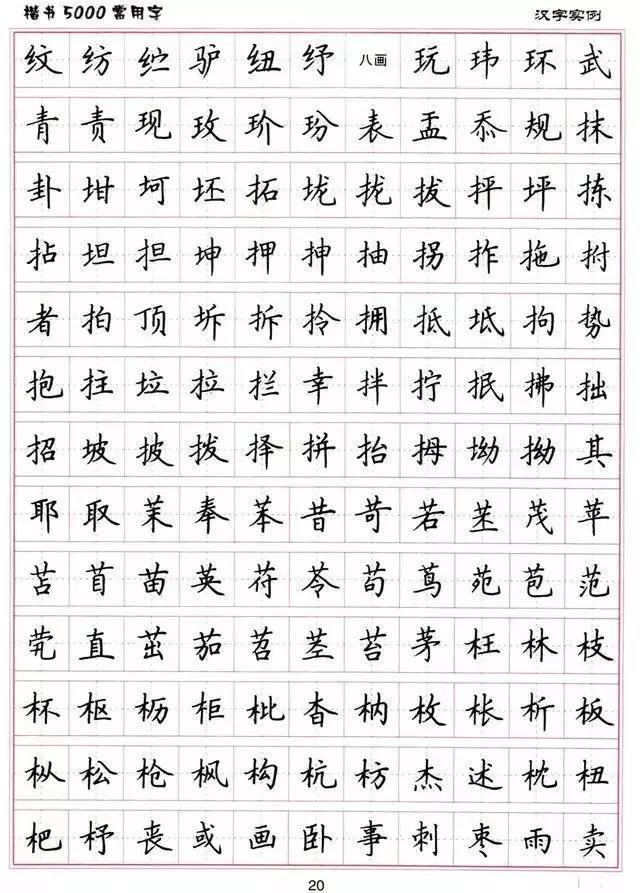 楷书5000常用字 汉字实例
纹 纺 纻 驴 纽 纾 八画 玩 玮 环 武
青 责 现 玫 玠 玢 表 盂 忝 规 抹
卦 坩 坷 坯 拓 垅 拢 拔 抨 坪 拣
拈 坦 担 坤 押 抻 抽 拐 拃 拖 拊
者 拍 顶 坼 拆 拎 拥 抵 坻 拘 势
抱 拄 垃 拉 拦 幸 拌 拧 抿 拂 拙
招 坡 披 拨 择 拚 抬 拇 坳 拗 其
耶 取 茉 奉 苯 昔 苛 若 茂 苹
苫 苜 苗 英 苻 苓 茍 茑 苑 苞 范
茕 直 茁 茄 苕 茎 苔 茅 枉 林 枝
杯 枢 枥 柜 枇 杳 枘 枚 枨 析 板
枞 松 枪 枫 构 杭 枋 杰 述 枕 杻
杷 杼 丧 或 画 卧 事 刺 枣 雨 卖
20